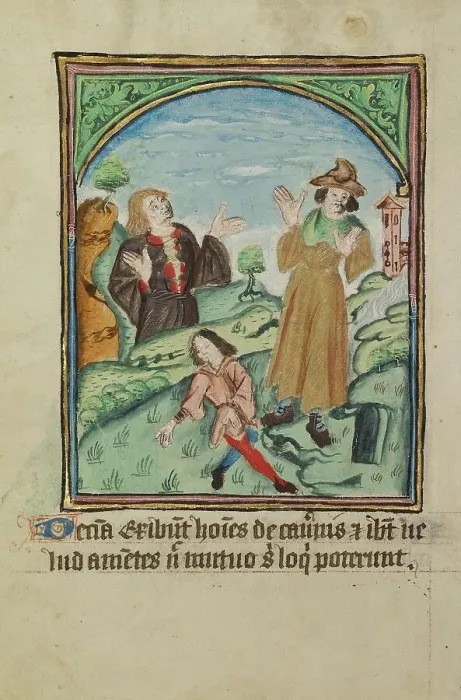 Decīa Exibūt hoīes de cauīnis ⁊ ibūt ue
lud amētes nͨ mutuo sͥ loqͥ poterunt.